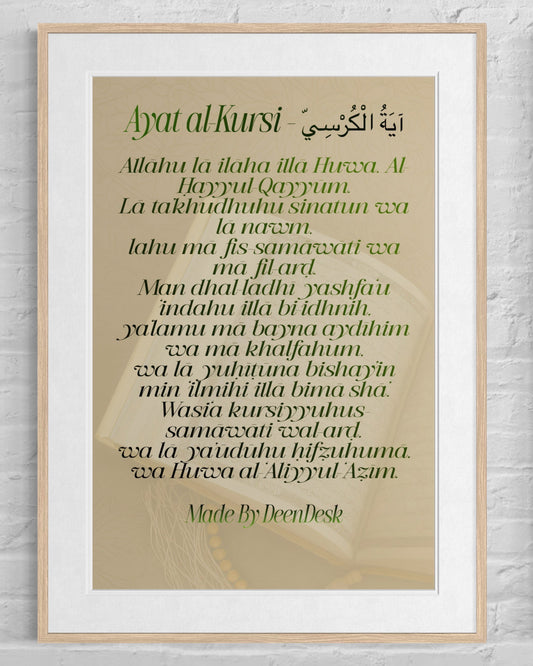 Ayat al-Kursi - اَيَةُ الْكُرْسِيّ
Allāhu lā ilāha illā Huwa. Al-
Ḥayyul-Qayyūm.
Lā ta'khudhuhu sinatun wa
lā nawm.
lahu mā fis-samāwāti wa
mā fil-arḍ.
Man dhal-ladhī yashfa'u
'indahu illā bi-idhnih.
ya'lamu mā bayna aydīhim
wa mā khalfahum.
wa lā yuḥīṭūna bishay'in
min 'ilmihī illā bimā shā'.
Wasi'a kursiyyuhus-
samāwāti wal-arḍ.
wa lā ya'ūduhū ḥifẓuhumā.
wa Huwa al-'Aliyyul-'Aẓīm.
Made By DeenDesk